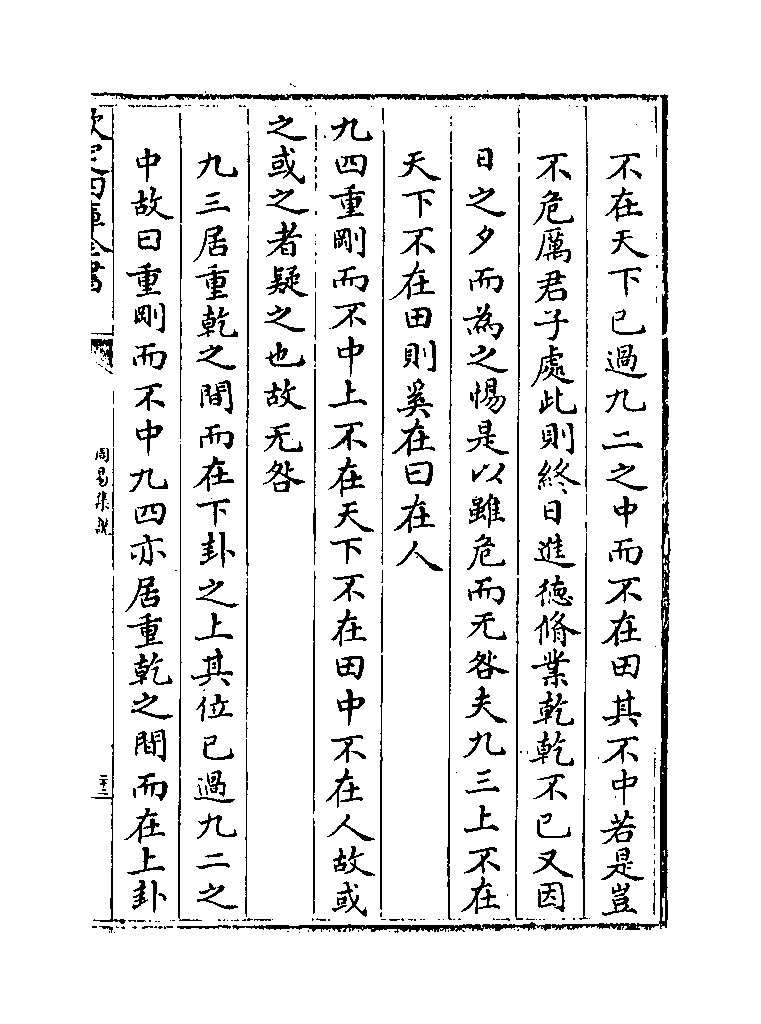 不在天下已過九二之中而不在田其不中若是豈
不危厲君子處此則終日進徳脩業乾乾不已又因
日之夕而為之惕是以雖危而无咎夫九三上不在
天下不在田則奚在曰在人
九四重剛而不中上不在天下不在田中不在人故或
之或之者疑之也故无咎
九三居重乾之間而在下卦之上其位已過九二之
中故曰重剛而不中九四亦居重乾之間而在上卦
欽定四庫全書
周易集說
二十三